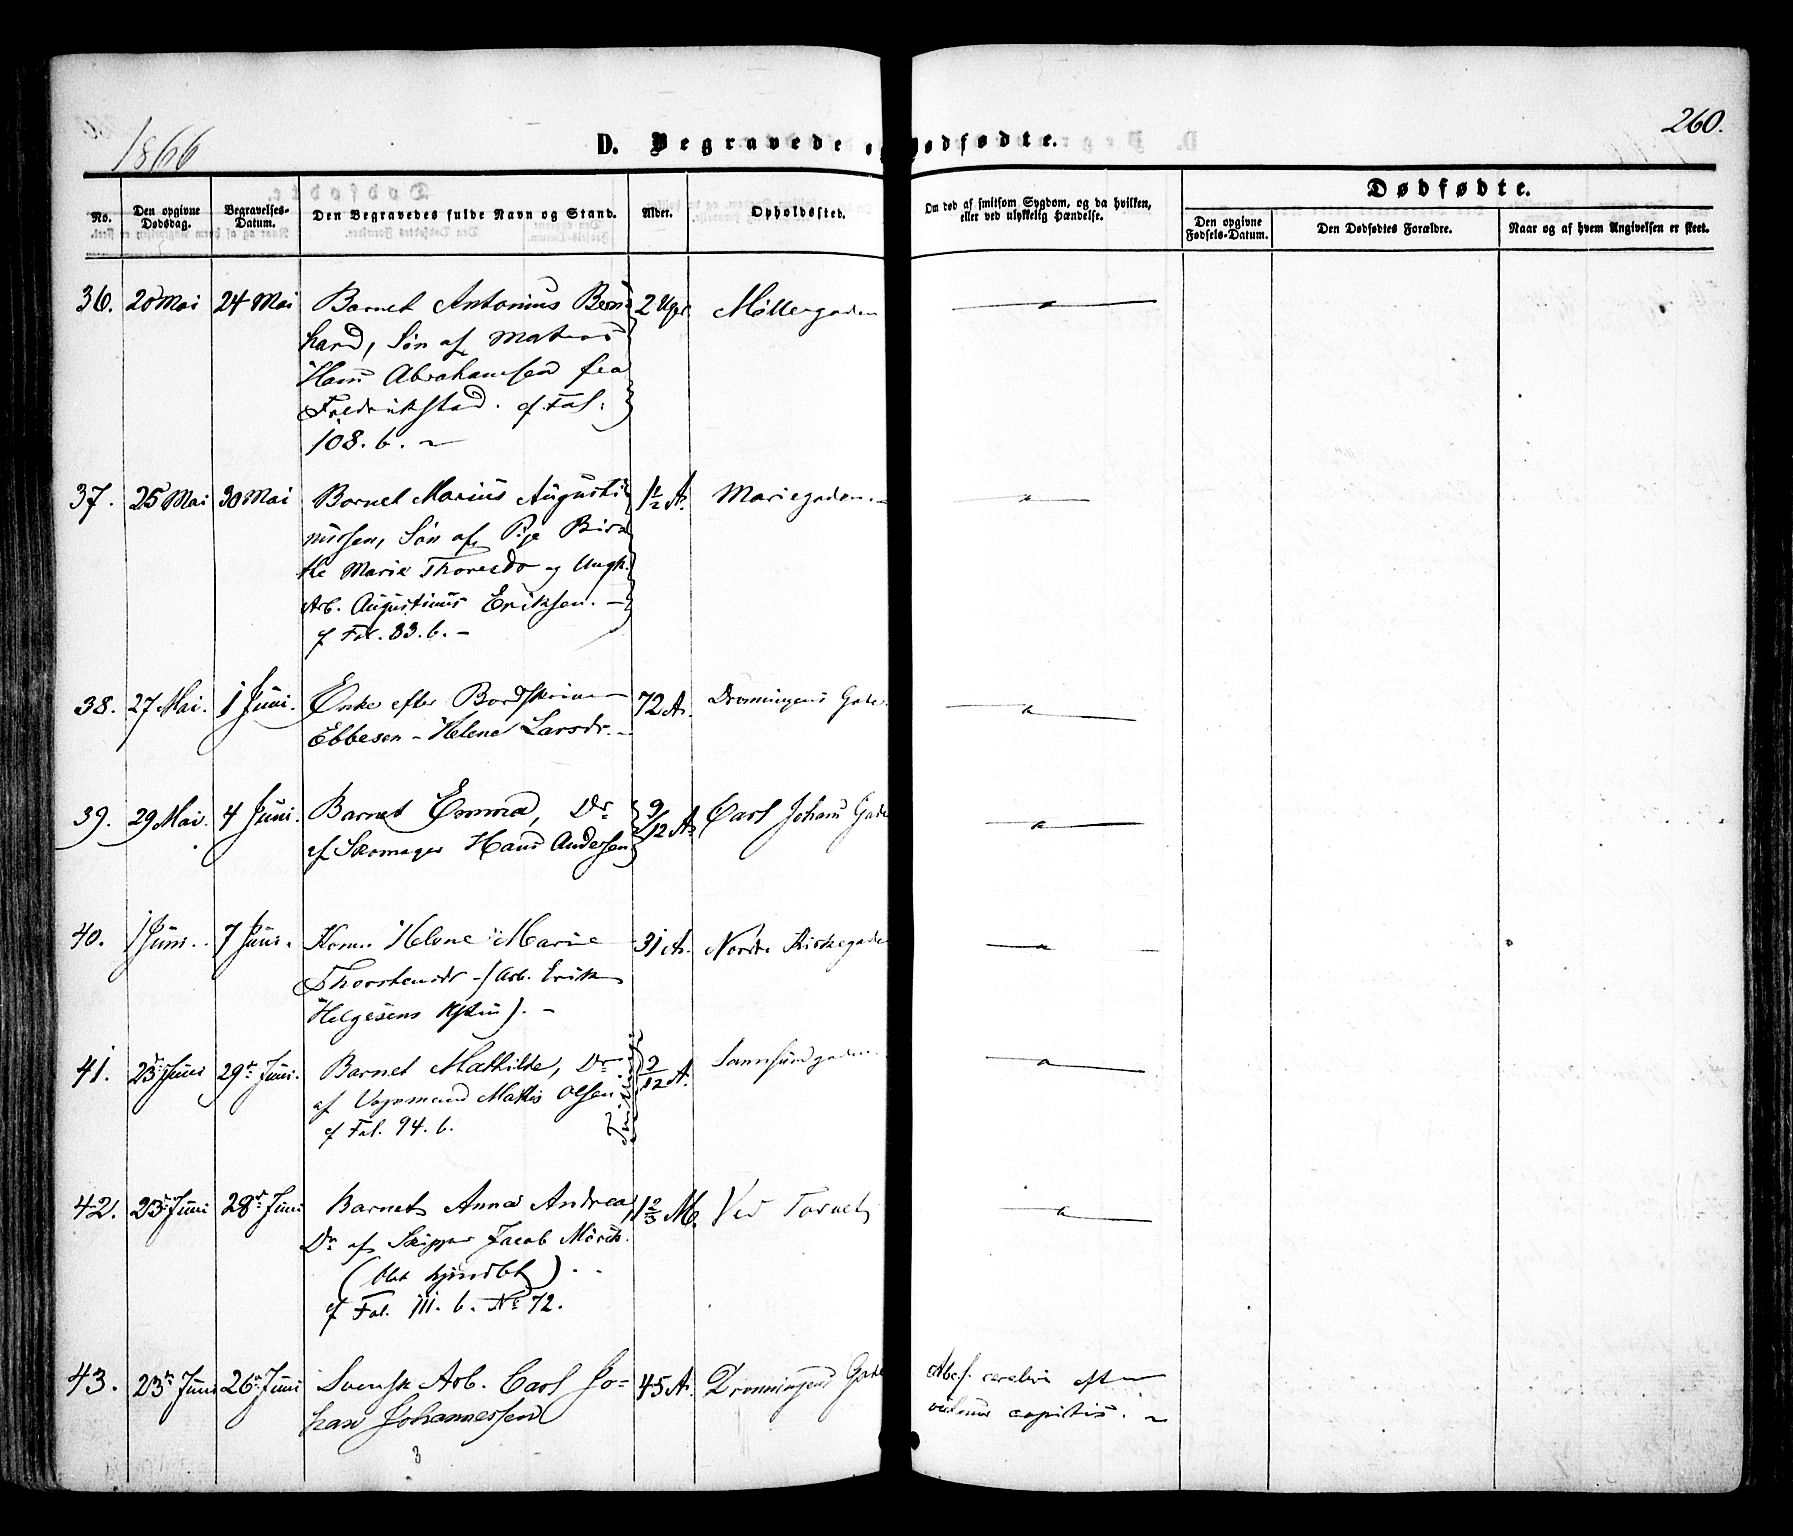 1866
D. Begravede o
ødfødte.
260.
No.
Den opgivne Dødsdag.
Begravelses-Datum.
Den Begravedes fulde Navn og Stand.
Alder.
Opholdssted.
Om død af smitsom Sygdom, og da hvilken, eller ved ulykkelig Hændelse.
Dødfødte.
Den opgivne Fødsels-Datum.
Den Dødfødtes Forældre.
Naar og af hvem Angivelsen er skeet.
36. 20 Mai 24 Mai Barnet Antonius Bern 2 Uger Møllergaden
hard, Søn af Matros
Hans Abrahamsen fra
Fredrikstad. cf Fol.
108. b.
37. 25 Mai 30 Mai Barnet Marius Augusti 1/2 A. Mariegaden.
nussen, Søn af Pige Birit
te Marie Thoresdr og Ungk.
Arb. Augustinus Eriksen. –
cf Fol. 83. b. –
38. 27 Mai. 1 Juni. Enke efter Bordskriver 72 A. Dronningens Gade.
Ebbesen – Helene Larsdr. –
39. 29 Mai. 4 Juni. Barnet Emma, Dr 9/12 A. Carl Johans Gade
af Skomager Hans Andersen
40. 1 Juni. 7 Juni. Kone Helene Marie 31 A. Nordre Kirkegade
Thorstensdr – (Arb. Erik
Helgesens Kone). –
41. 23 Juni 29 Juni. Barnet Mathilde, Dr 2/12 A.
af Vognmand Mathis Olsen
cf Fol. 94. b.
42. 23 Juni 28 Juni Barnet Anna Andrea 1 2/3 M. Ved Torvet
Dr af Skipper Jacob Mørch.
cf Fol. 111. b. No 72.
43. 23 Juni 26 Juni Svensk Arb. Carl Jo= 45 A. Dronningens Gade Absc. cerebri efter
han Johannessen vulnus capitis. –
3